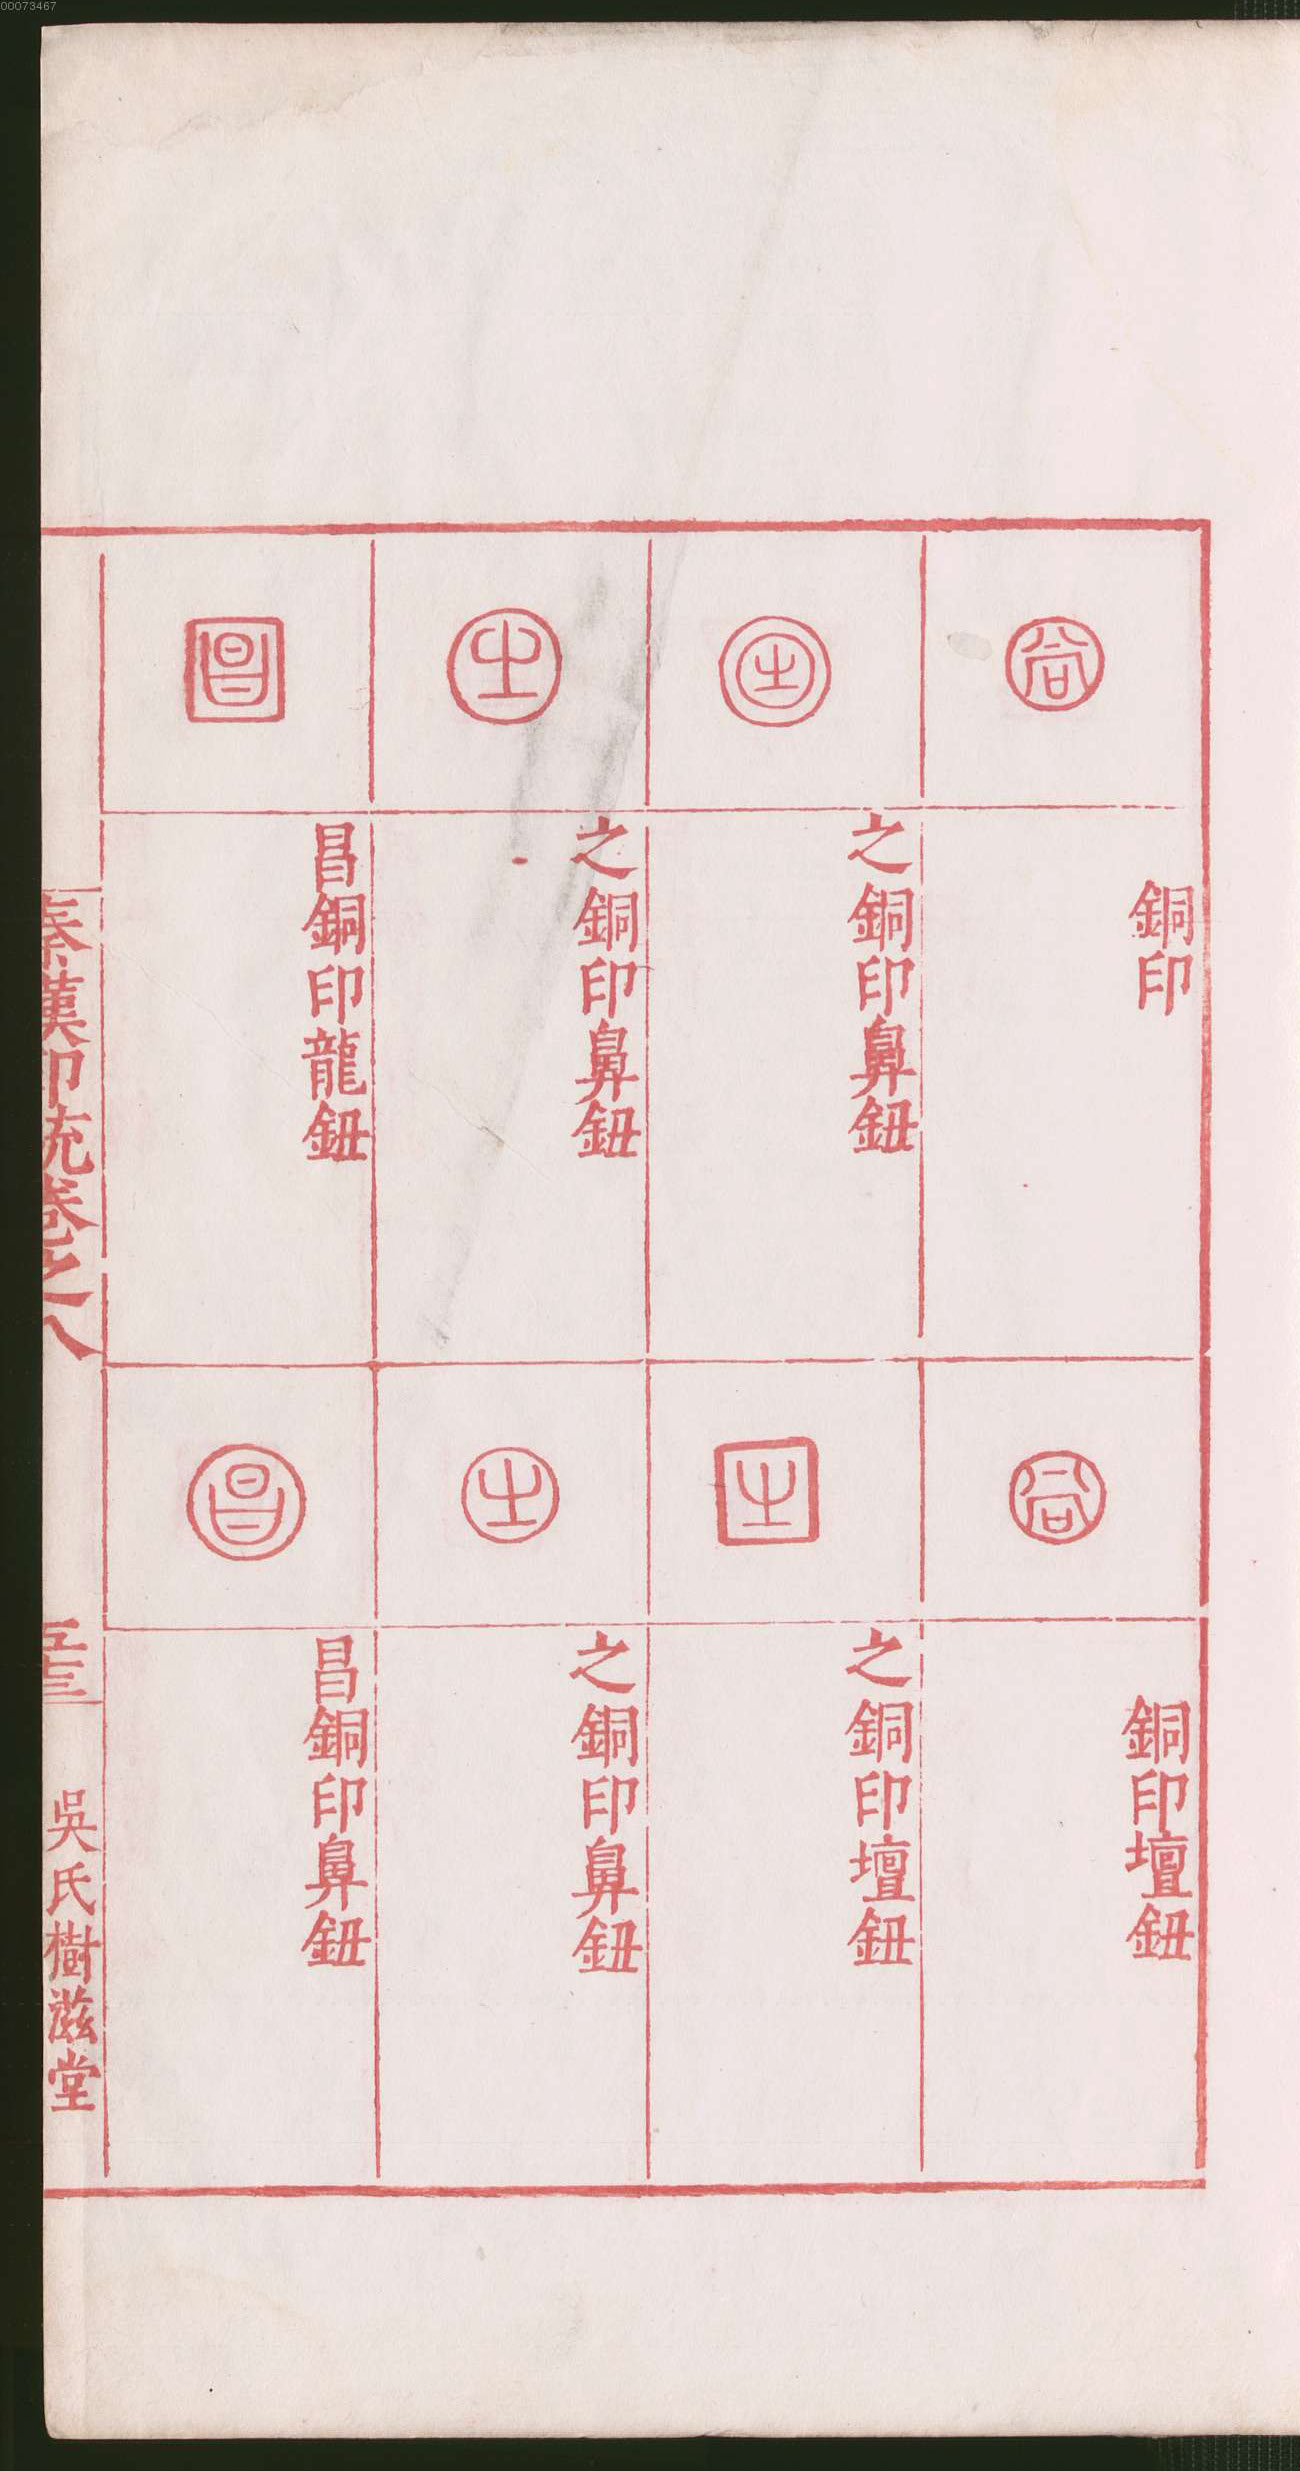 00073467
銅印
之銅印鼻鈕
之銅印鼻鈕
昌銅印龍鈕
銅印壇鈕
之銅印壇鈕
之銅印鼻鈕
昌銅印鼻鈕
昌
昌
秦漢印統卷之八
五十三
吳氏樹滋堂